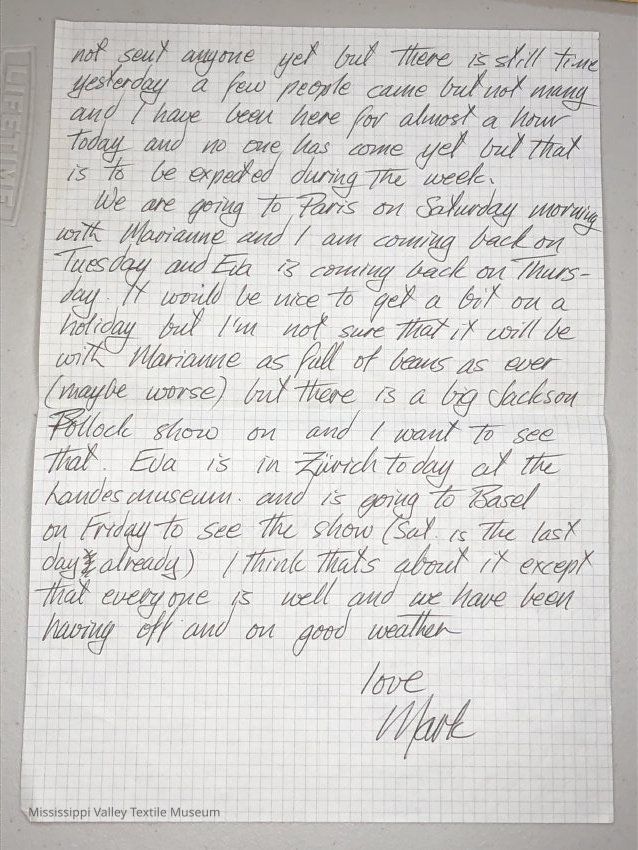 LIFETIME
not sent anyone yet but there is still time
yesterday a few people came but not many
and I have been here for almost a hour
today and no one has come yet but that
is to be expected during the week.
We are going to Paris on Saturday morning
with Marianne and I am coming back on
Tuesday and Eva is coming back on Thurs-
day. It would be nice to get a bit on a
holiday but I'm not sure that it will be
with Marianne as full of beans as ever
(maybe worse) but there is a big Jackson
Pollock show on and I want to see
that. Eva is in Zürich today at the
Landesmuseum. and is going to Basel
on Friday to see the show (Sat. is the last
day already) I think thats about it except
that everyone is well and we have been
having off and on good weather
love
Mark
Mississippi Valley Textile Museum